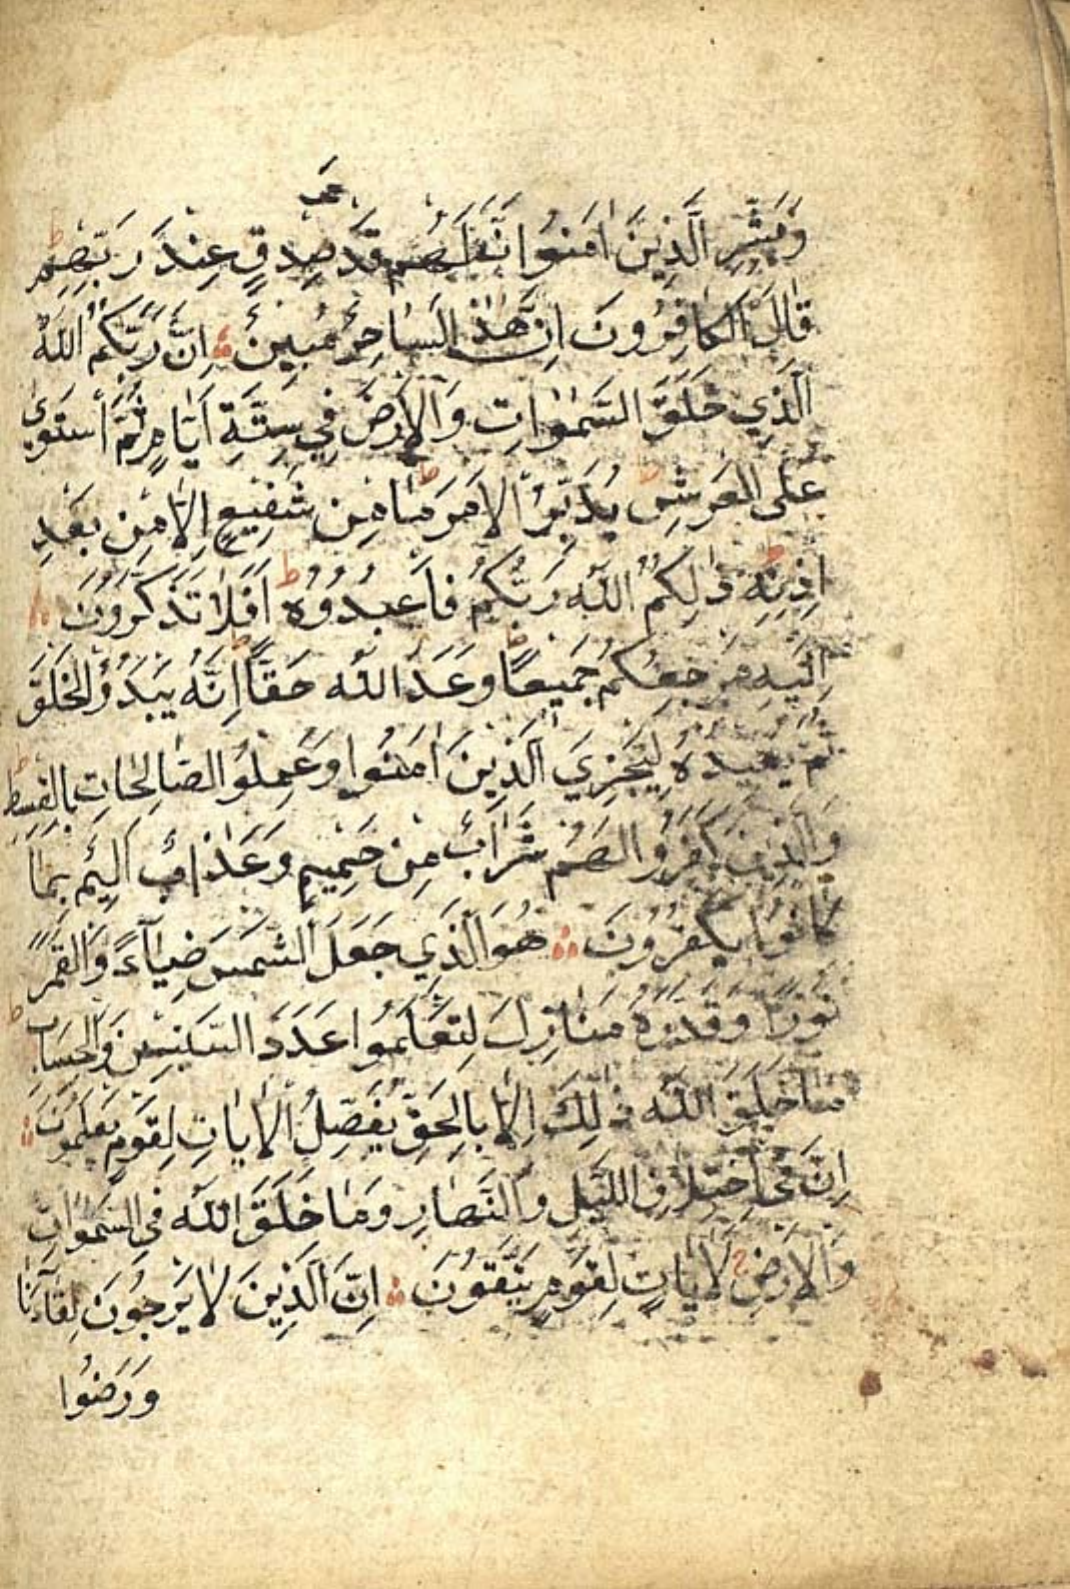 وَبَشِّرِ الَّذِينَ اٰمَنُوا اَنَّ لَهُمْ قَدَمَ صِدْقٍ عِنْدَ رَبِّهِمْ ط
قَالَ الْكَافِرُونَ اِنَّ هٰذَا لَسَاحِرٌ مُبِينٌ اِنَّ رَبَّكُمُ اللّٰهُ
الَّذِي خَلَقَ السَّمٰوَاتِ وَالْاَرْضَ فِي سِتَّةِ اَيَّامٍ ثُمَّ اسْتَوٰى
عَلَى الْعَرْشِ ط يُدَبِّرُ الْاَمْرَ ط مَا مِنْ شَفِيعٍ اِلَّا مِنْ بَعْدِ
اِذْنِهِ ط ذٰلِكُمُ اللّٰهُ رَبُّكُمْ فَاعْبُدُوهُ ط اَفَلَا تَذَكَّرُونَ
اِلَيْهِ مَرْجِعُكُمْ جَمِيعًا ط وَعْدَ اللّٰهِ حَقًّا ط اِنَّهُ يَبْدَؤُ الْخَلْقَ
ثُمَّ يُعِيدُهُ لِيَجْزِيَ الَّذِينَ اٰمَنُوا وَعَمِلُوا الصَّالِحَاتِ بِالْقِسْطِ ط
وَالَّذِينَ كَفَرُوا لَهُمْ شَرَابٌ مِنْ حَمِيمٍ وَعَذَابٌ اَلِيمٌ بِمَا
كَانُوا يَكْفُرُونَ هُوَ الَّذِي جَعَلَ الشَّمْسَ ضِيَاءً وَالْقَمَرَ
نُورًا وَقَدَّرَهُ مَنَازِلَ لِتَعْلَمُوا عَدَدَ السِّنِينَ وَالْحِسَابَ ط
مَا خَلَقَ اللّٰهُ ذٰلِكَ اِلَّا بِالْحَقِّ يُفَصِّلُ الْاٰيَاتِ لِقَوْمٍ يَعْلَمُونَ
اِنَّ فِي اخْتِلَافِ اللَّيْلِ وَالنَّهَارِ وَمَا خَلَقَ اللّٰهُ فِي السَّمٰوَاتِ
وَالْاَرْضِ لَاٰيَاتٍ لِقَوْمٍ يَتَّقُونَ اِنَّ الَّذِينَ لَا يَرْجُونَ لِقَاءَنَا
وَرَضُوا